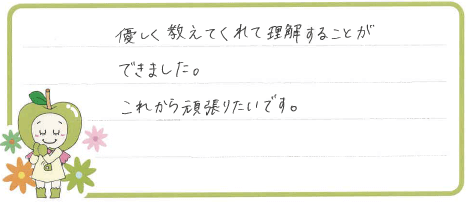 優しく教えてくれて理解することが
できました。
これから頑張りたいです。